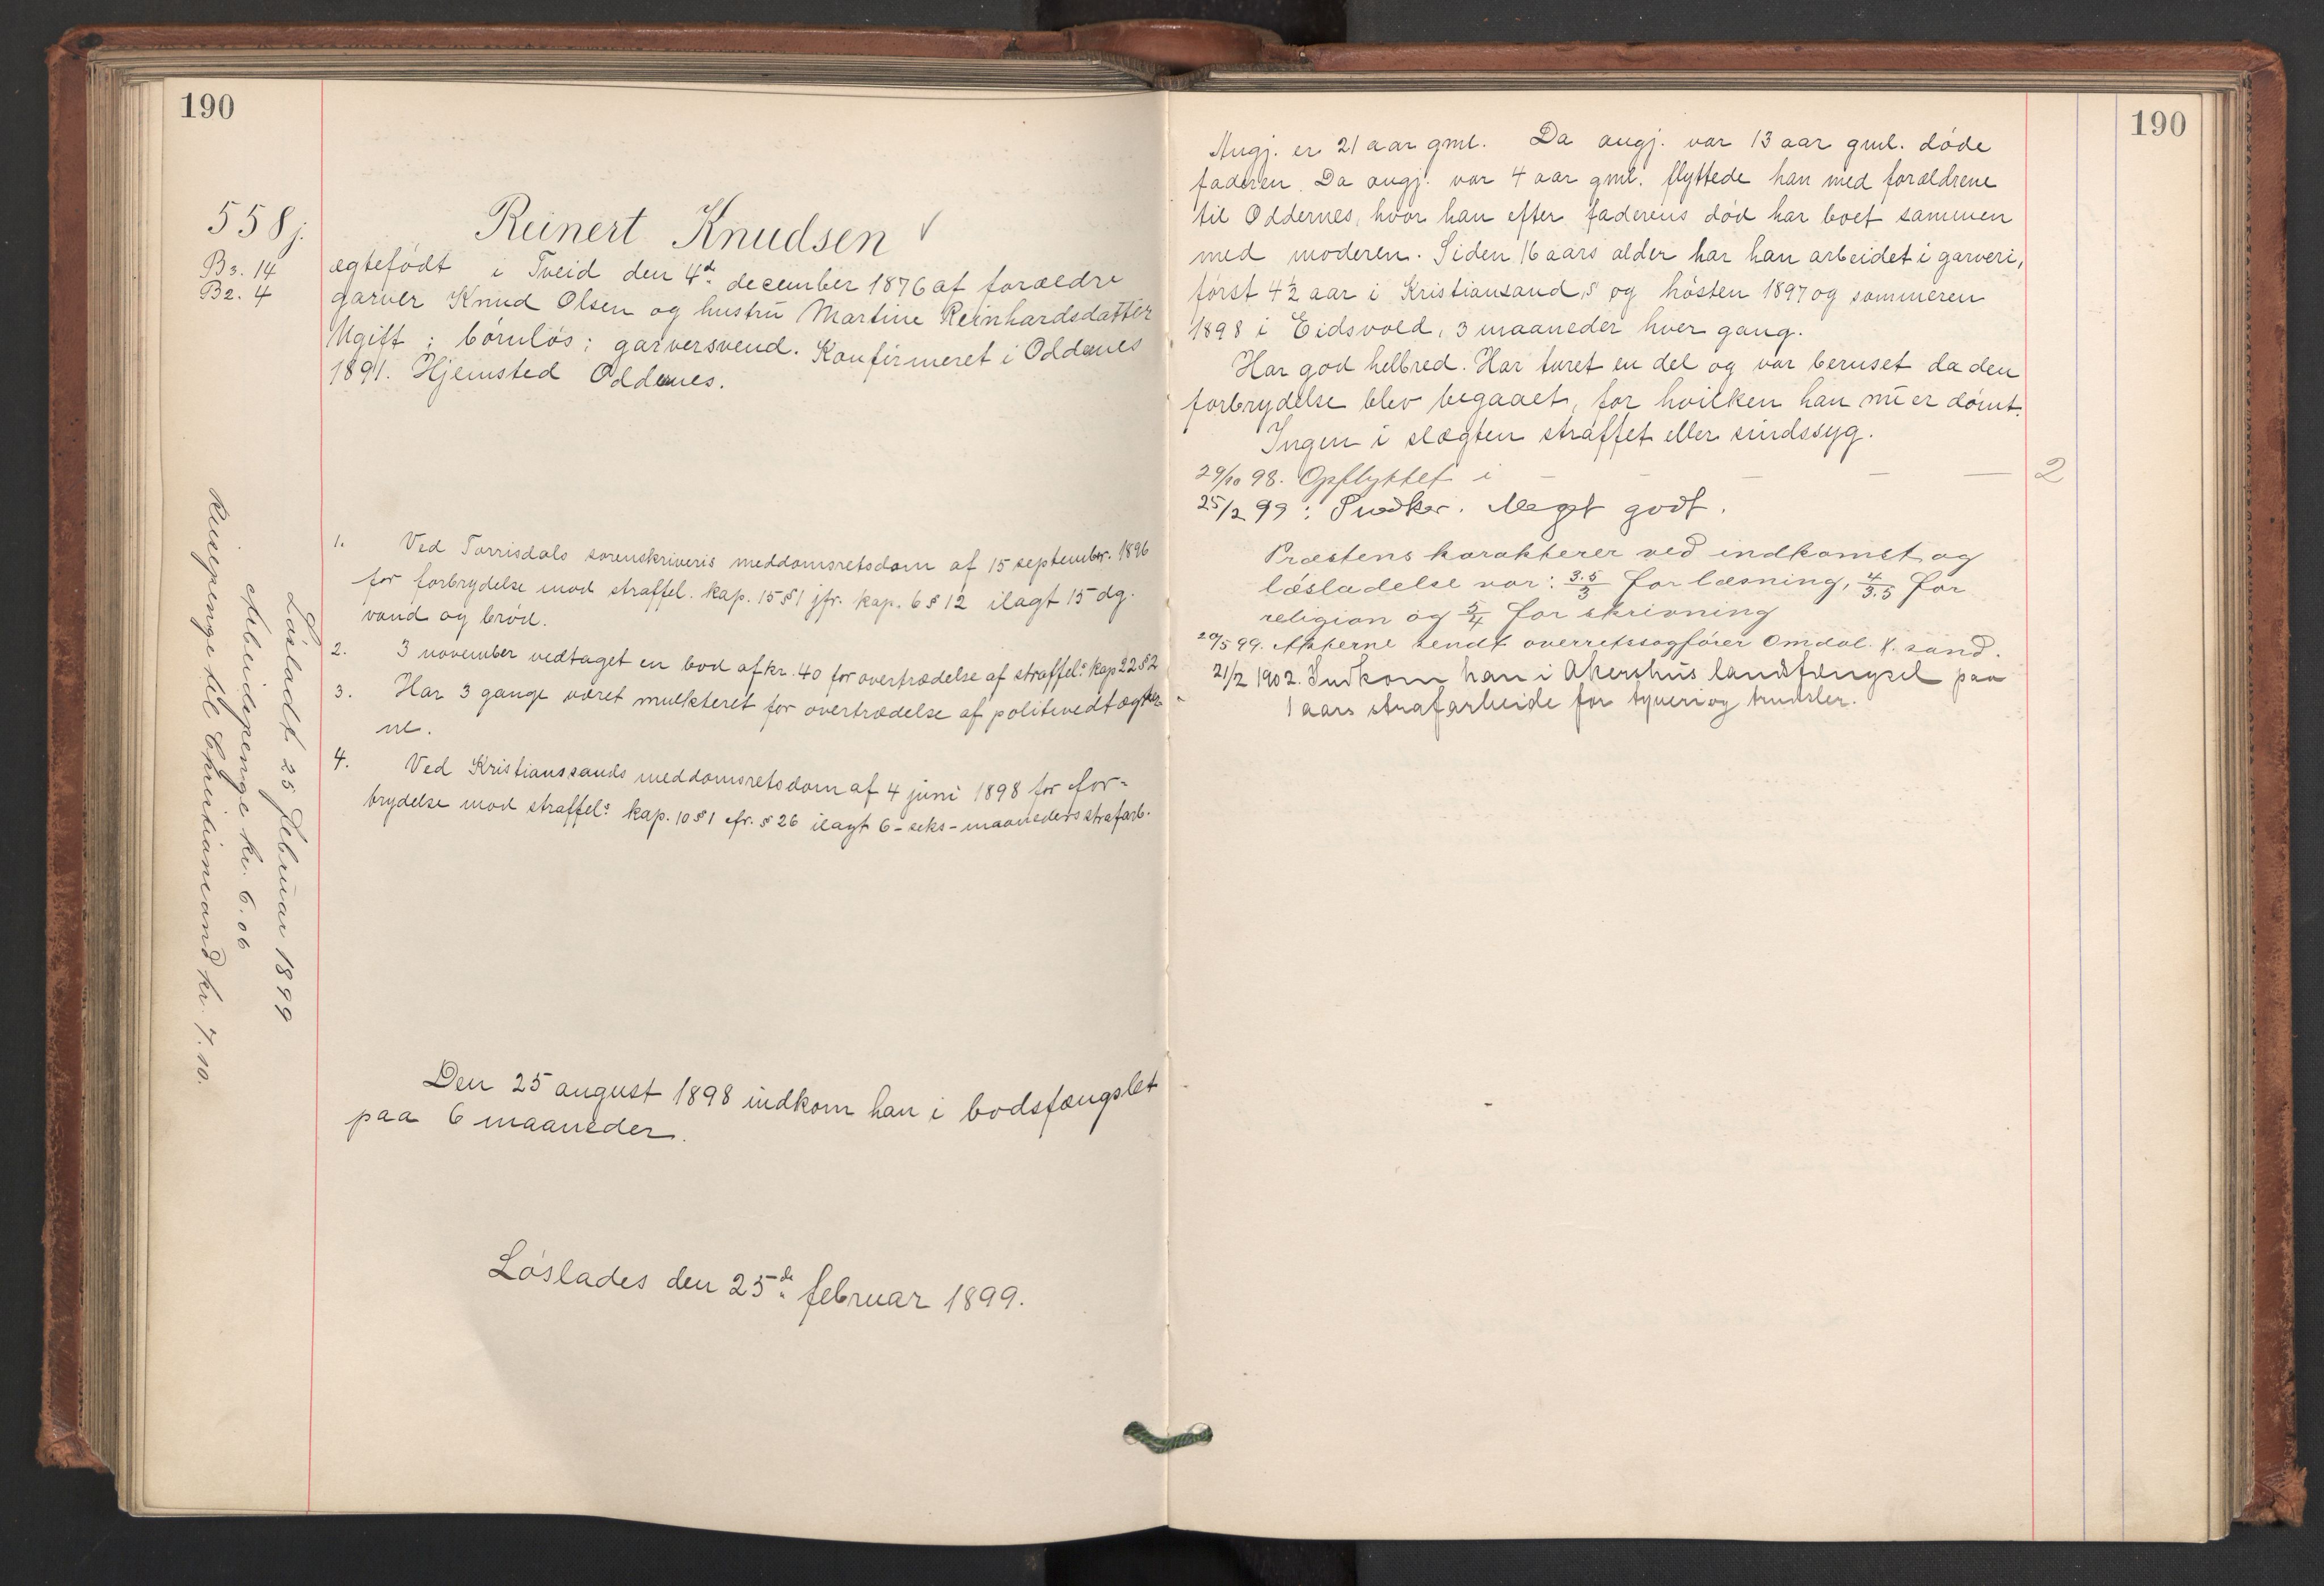 190
558j.
B3. 14
B2. 4
Reinert Knudsen √
ægtefødt i Tveid den 4de december 1876 af forældre
garver Knud Olsen og hustru Martine Reinhardsdatter
Ugift; börnlös; garversvend. Konfirmeret i Oddernes
1891. Hjemsted Oddernes.
1. Ved Torrisdals sorenskriveris meddomsretsdom af 15 september 1896
for forbrydelse mod straffel. kap. 15 § 1 jfr. kap. 6 § 12 ilagt 15 dg.
vand og bröd.
2. 3 november vedtaget en bod af kr. 40 for overtrædelse af straffel.s kap 22 § 2
3. Har 3 gange været mulkteret for overtrædelse af politivedtægter-
ne.
4. Ved Kristianssands meddomsretsdom af 4 juni 1898 for for-
brydelse mod straffel.s kap. 10 § 1 cfr. § 26 ilagt 6 - seks - maaneders strafarb.
Den 25 august 1898 indkom han i bodsfængslet
paa 6 maaneder.
Löslades den 25de februar 1899.
Lösladt 25 februar 1899
Arbeidspenge kr. 6.06
Reisepenge til Christiansand kr. 7.10.
190
Angj. er 21 aar gml. Da angj. var 13 aar gml. döde
faderen. Da angj. var 4 aar gml. flyttede han med forældrene
til Oddernes, hvor han efter faderens död har boet sammen
med moderen. Siden 16 aars alder har han arbeidet i garveri,
först 4½ aar i Kristiansand S og hösten 1897 og sommeren
1898 i Eidsvold, 3 maaneder hver gang.
Har god helbred. Har turet en del og var beruset da den
forbrydelse blev begaaet, for hvilken han nu er dömt.
Ingen i slægten straffet eller sindssyg.
29/10 98. Opflyttet i - - - - 2
25/2 99: Snedker. Meget godt.
Præstens karakterer ved indkomst og
lösladelse var: 3.5/3 for læsning, 4/3.5 for
religion og 5/4 for skrivning
20/5 99. Akterne sendt overretssagförer Omdal. K.sand.
21/2 1902. Indkom han i Akershus landsfængsel paa
1 aars strafarbeide for tyveri og trudsler.